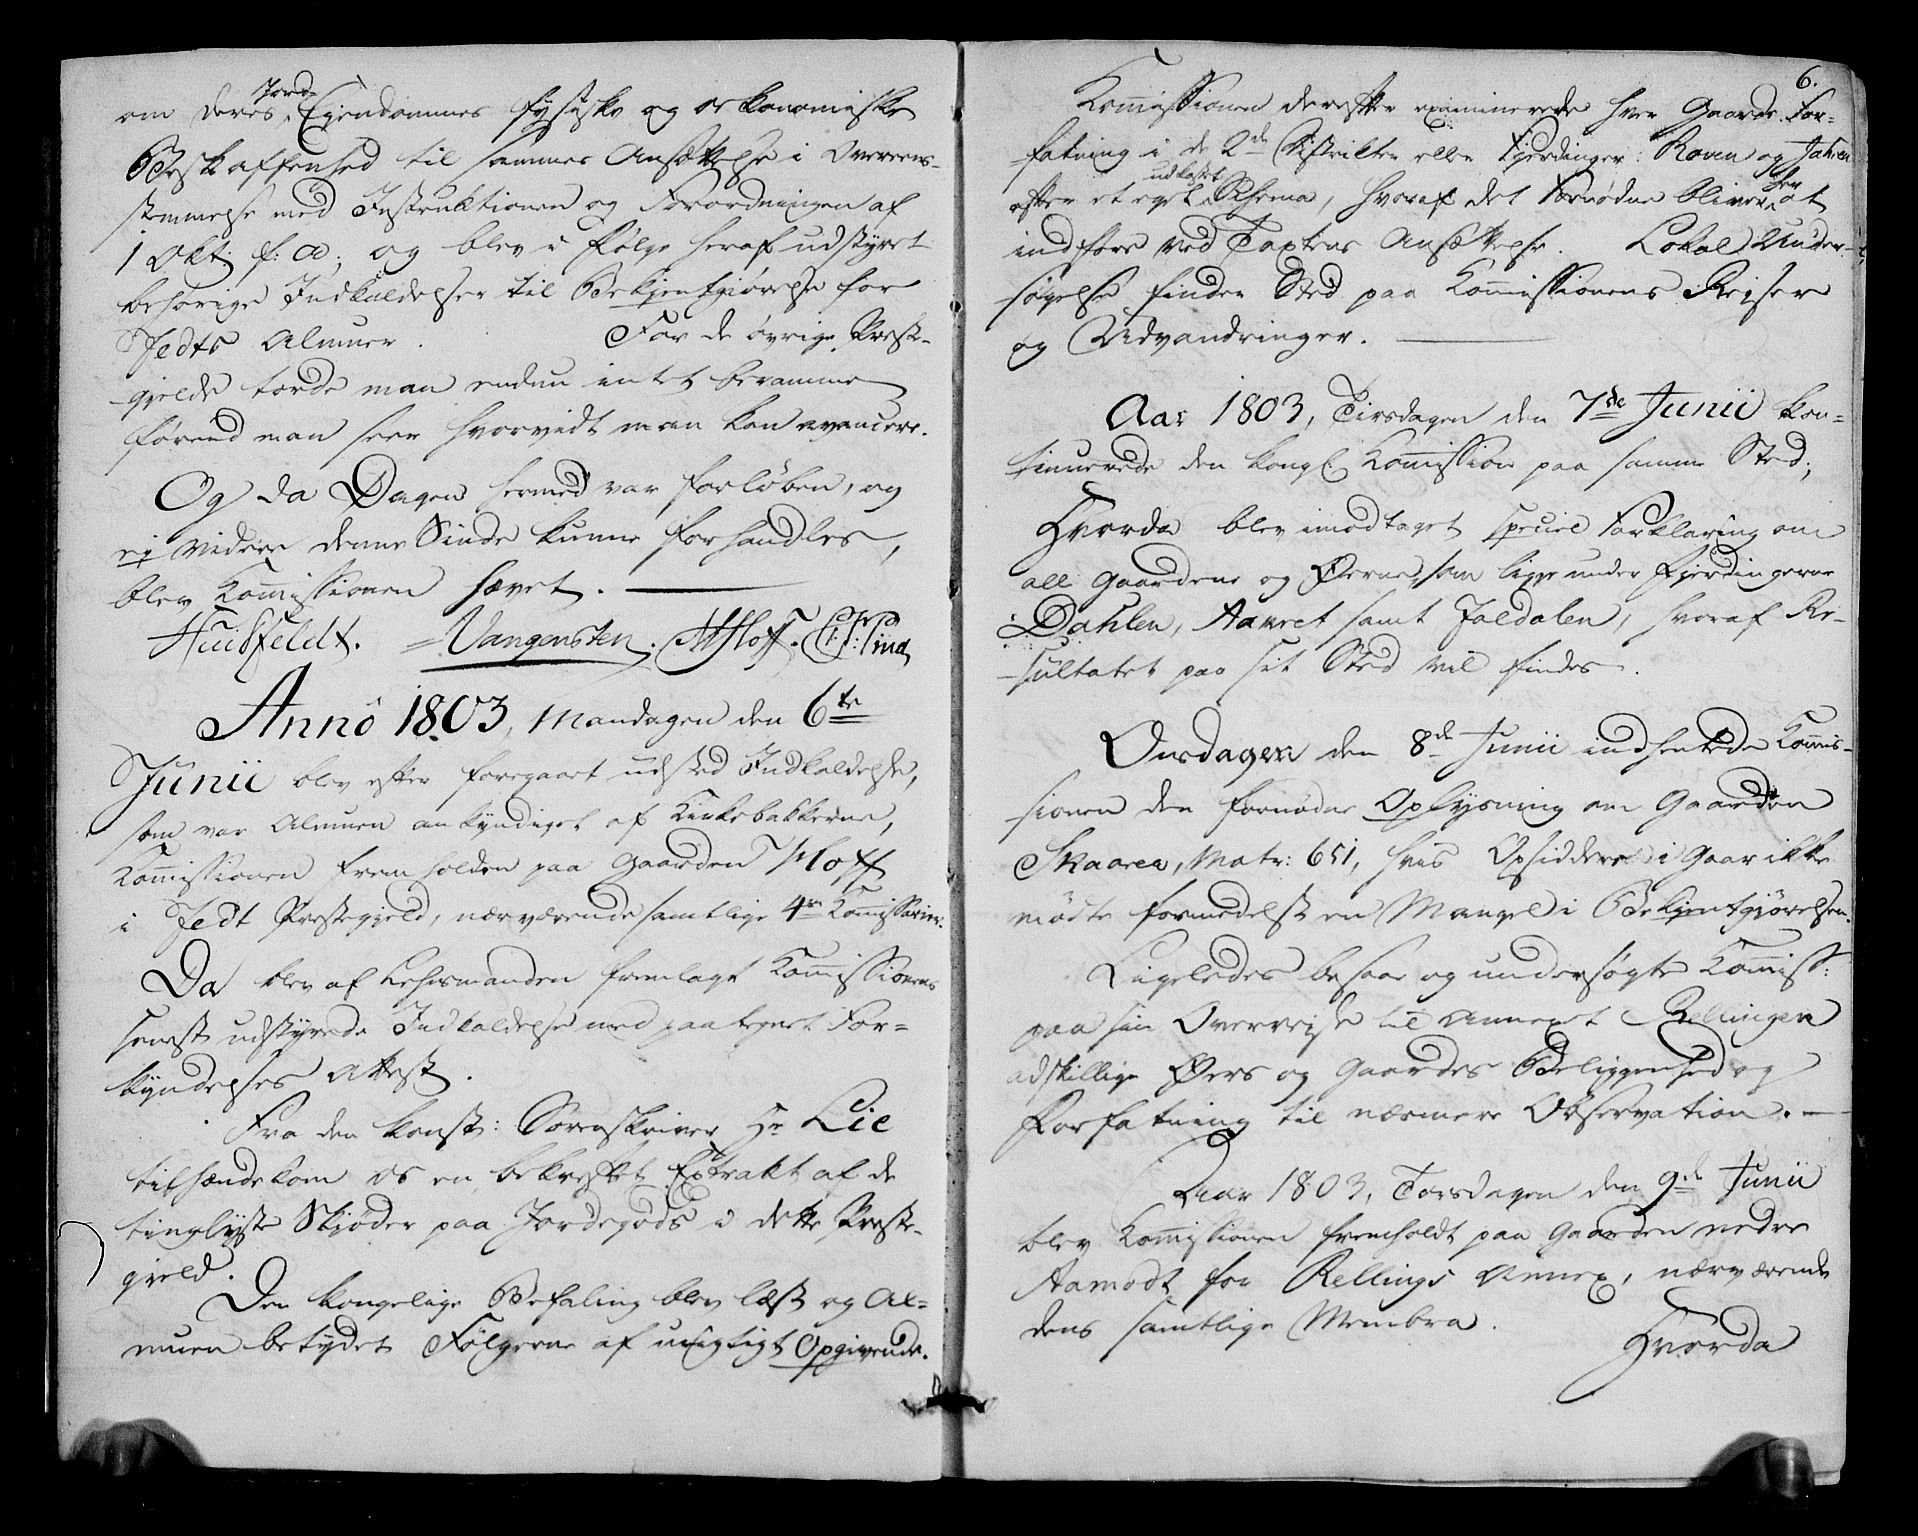 om deres Jord- Ejendommes fysiske og oekonomiske
Beskaffenhed til sammes Ansættelse i Overeens-
stemmelse med Instruktionen og Forordningen af
1 Okt: f: A; og blev i Følge heraf udstyret
behørige Indkaldelser til Bekjentgjørelse for
Almuer. For de øvrige Preste-
gjelde torde man endnu intet beramme
førend man seer hvorvidt man kan avancere.
Og da Dagen hermed var forløben, og
ej videre denne Sinde kunne forhandles,
blev Kommissionen hævet.
Huusfeldt. Vangensten. Hoff.
Anno 1803, Mandagen den 6te
Junii blev efter foregaaet udsted Indkaldelse,
som var Almuen ankyndiget af Kirkebakkerne,
Kommissionen fremholden paa Gaarden Hoff
i Prestegjeld, nærværende samtlige 4re Kommissarier.
Da blev af Lehnsmanden fremlagt Kommissionens
herest udstyrede Indkaldelse med paategnet For-
kyndelses Attest.
Fra den konst: Sorenskriver Hr Lie
tilhændekom os en bekreftet Extrakt af de
tinglyste Skjøder paa Jordegods i dette Preste-
gjeld.
Den kongelige Befaling blev læst og Al-
muen betydet Følgerne af urigtigt Opgivende.
6.
Kommissionen derefter examinerede hver Gaards For-
fatning i de 2de Distrikter eller Fjerdinger: Roven og
efter et eget udkastet Skema, hvoraf det fornødne bliver her at
indføre ved Taxtens Ansættelse. Lokal Under-
søgelse finder Sted paa Kommissionens Rejser
og Udvandringer.
Aar 1803, Tirsdagen den 7de Junii kon-
tinuerede den kongl. Kommission paa samme Sted;
Hvorda blev imodtaget speciel Forklaring om
all Gaardene og Øerne, som ligge under Fjerdingerne
Dahlen, Aavret samt Jøldalen, hvoraf Re-
sultatet paa sit Sted vil findes.
Onsdagen den 8de Junii indhentede Kommis-
sionen den fornødne Oplysning om Gaarden
Skaaren, Matr: 651, hvis Opsiddere i Gaar ikke
mødte formedelst en Mangel i Bekjentgjørelsen.
Ligeledes besaae og undersøgte Kommiss:
paa sin Overrejse til Annexet Rellingen
adskillige Øers og Gaardes Beliggenhed og
Forfatning til nærmere Observation.
Aar 1803, Torsdagen den 9de Junii
blev Kommissionen fremholdt paa Gaarden nedre
Aamodt for Rellings Annex, nærværende
dens samtlige Membra.
Hvorda